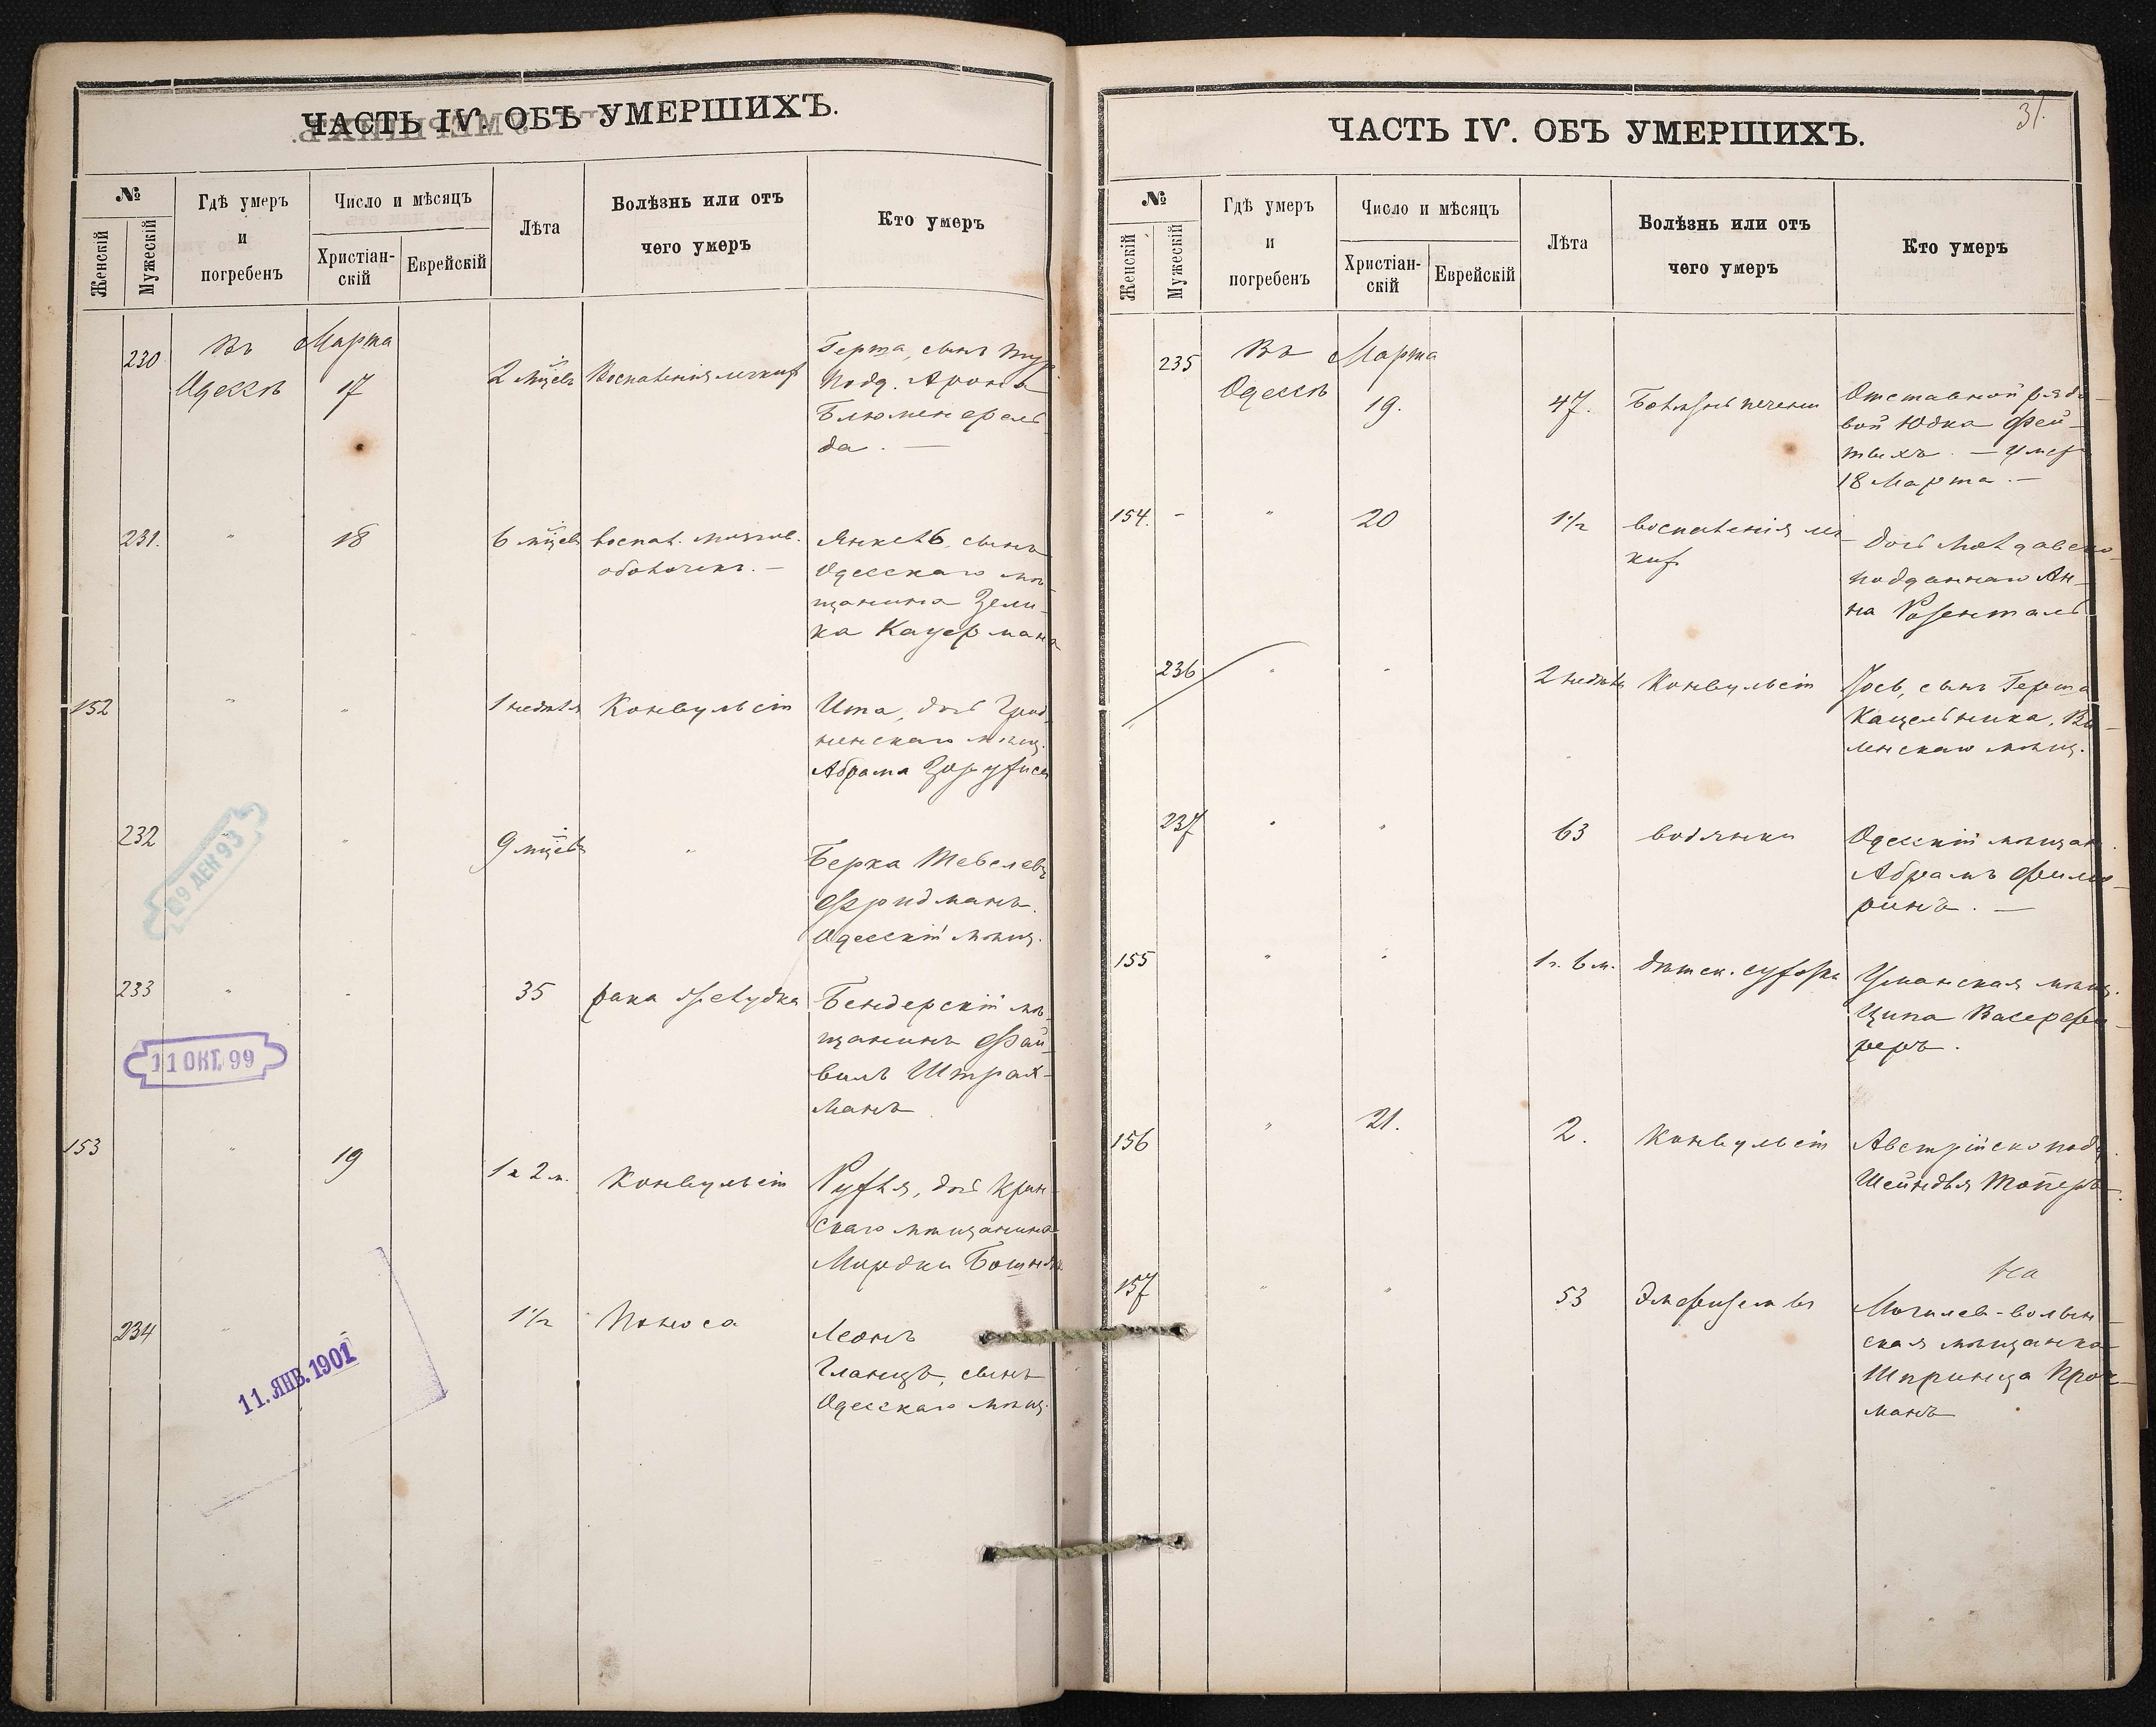 ЧАСТЬ IV. ОБЪ УМЕРШИХЪ.
№
Женскій
Мужескій
Гдѣ умеръ
и
погребенъ
Число и мѣсяцъ
Христіан-
скій
Еврейскій
Лѣта
Болѣзнь или отъ
чего умеръ
Кто умеръ
230
Въ
Одессѣ
Марта
17
2 мѣсѣ
Воспаленія легких
Герша, сынъ тур.
подд. Арона
Блюменфель
да. —
231.
"
18
6 мѣсѣ
воспал. мозгов.
оболочекъ. —
Янкель, сынъ
Одесскаго мѣ-
щанина Зели-
ка Кацермана
152
"
"
1 недѣля
Конвульсіи
Ита, дочь Грод-
ненскаго мѣщ.
Абрама
232
"
"
9 мѣсѣ
"
Берка Тевелевъ
Фридманъ.
Одесскій мѣщ.
09 ДЕК 93
233
"
"
35
рака желудка
Бендерскій мѣ-
щанинъ Фай-
виль Штрах-
манъ
11 ОКТ. 99
153
"
19
1 г 2 м.
Конвульсіи
Рухля, дочь
скаго мѣщанина
Мордки
234
"
1 1/2
Поноса
Леонъ
Гланцъ, сынъ
Одесскаго мѣщ.
11. ЯНВ. 1901
31.
ЧАСТЬ IV. ОБЪ УМЕРШИХЪ.
№
Женскій
Мужескій
Гдѣ умеръ
и
погребенъ
Число и мѣсяцъ
Христіан-
скій
Еврейскій
Лѣта
Болѣзнь или отъ
чего умеръ
Кто умеръ
235
Въ
Одессѣ
Марта
19.
47.
Болѣзнь печени
Отставной рядо-
вой Юдка Фей-
— умер
18 Марта. —
154.
-
"
20
1 1/2
воспаленія лег-
ких
дочь Молдавско-
подданнаго Ан-
на Розенталь
236
"
"
2 недѣли
Конвульсіи
Іось, сынъ Герша
Кацельника, Ви-
ленскаго мѣщ.
237
"
"
63
водянки
Одесскій мѣщан.
Абрамъ
ринъ. —
155
"
"
1 г. 6 м.
дѣтск. сухотка
Уманская мѣщ.
Ципа
156
"
21.
2.
Конвульсіи
Австрійскоподд.
Шейндля Топеръ.
157
"
"
53
Эмфиземы
на
Могилев-волын-
ская мѣщанка
Шпринца
манъ